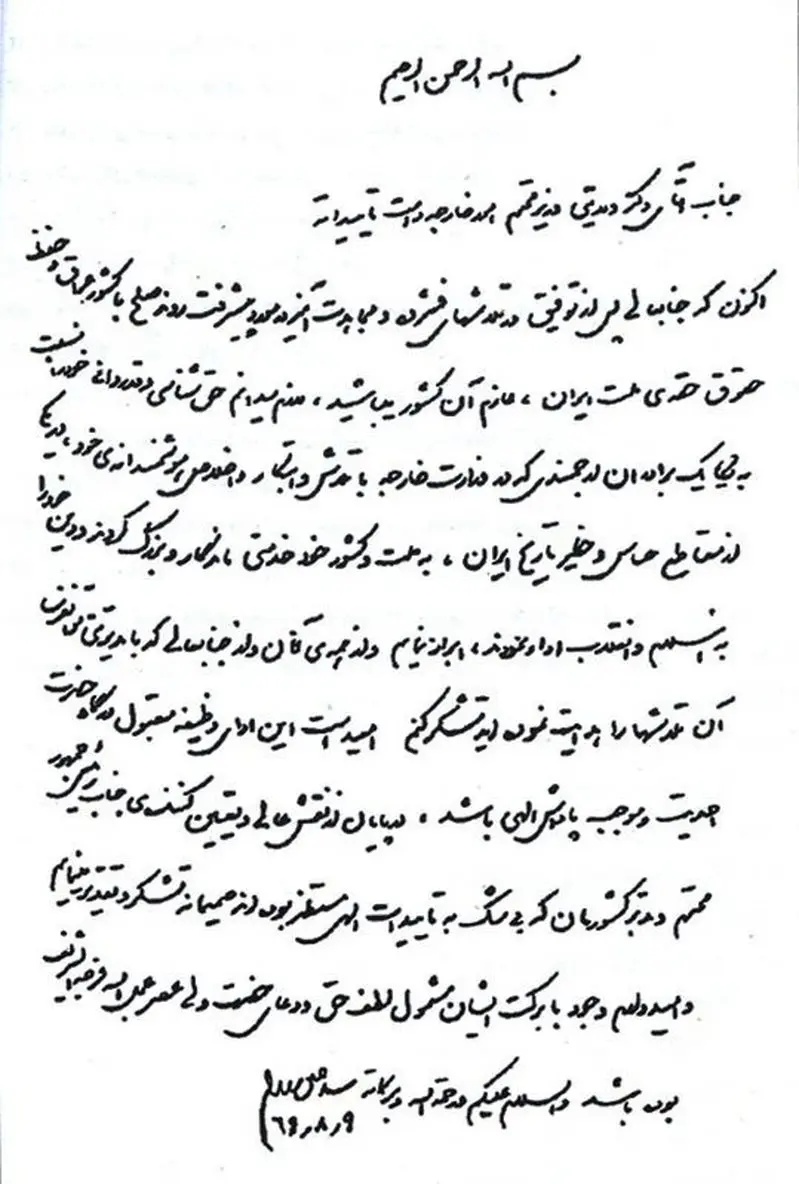 بسم الله الرحمن الرحیم
جناب آقای دکتر ولایتی وزیر محترم امور خارجه دامت تاییداته
اکنون که جنابعالی پس از توفیق در تلاشهای فشرده و مجاهدت آمیز در مورد پیشرفت روند صلح با کشور عراق و حفظ
حقوق حقه‌ی ملت ایران ، عازم آن کشور میباشید ، لازم میدانم حق شناسی و قدردانی خود را نسبت
به یکایک برادران ارجمندی که در وزارت خارجه با تلاش و ابتکار و اخلاص هوشمندانه‌ی خود ، در یکی
از مقاطع حساس و خطیر تاریخ ایران ، به ملت و کشور خود خدمتی ماندگار و بزرگ کردند و دین خود را
به اسلام و انقلاب ادا نمودند ، ابراز نمایم و از همه‌ی آنان و از جنابعالی که با مدیریتی
آن تلاشها را هدایت نموده اید تشکر کنم امید است این ادای وظیفه مقبول درگاه حضرت
احدیت و موجب پاداش الهی باشد . در پایان از نقش عالی و تعیین کننده‌ی جناب رئیس جمهور
محترم و مدبر کشورمان که بی شک به تاییدات الهی مستظهر بوده اند صمیمانه تشکر و تقدیر مینمایم
و امیدوارم وجود با برکت ایشان مشمول لطف حق و دعای حضرت ولی عصر عجل الله فرجه الشریف
بوده باشد والسلام علیکم و رحمة الله و برکاته سید علی خامنه‌ای
۶۹٫۸٫۹